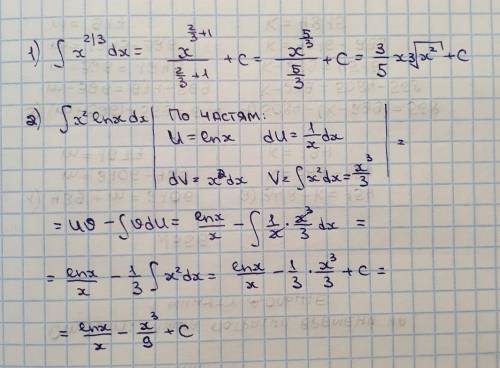 1) ∫ x^{2/3} dx = \frac{x^{\frac{2}{3}+1}}{\frac{2}{3}+1} + C = \frac{x^{\frac{5}{3}}}{\frac{5}{3}} + C = \frac{3}{5} x ∛{x^2} + C
2) ∫ x² lnx dx | По частям:
U = lnx dU = \frac{1}{x} dx
dV = x² dx V = ∫ x² dx = \frac{x^3}{3} | =
= UV − ∫ V dU = \frac{lnx}{x} − ∫ \frac{1}{x} · \frac{x^3}{3} dx =
= \frac{lnx}{x} − \frac{1}{3} ∫ x² dx = \frac{lnx}{x} − \frac{1}{3} · \frac{x^3}{3} + C =
= \frac{lnx}{x} − \frac{x^3}{9} + C